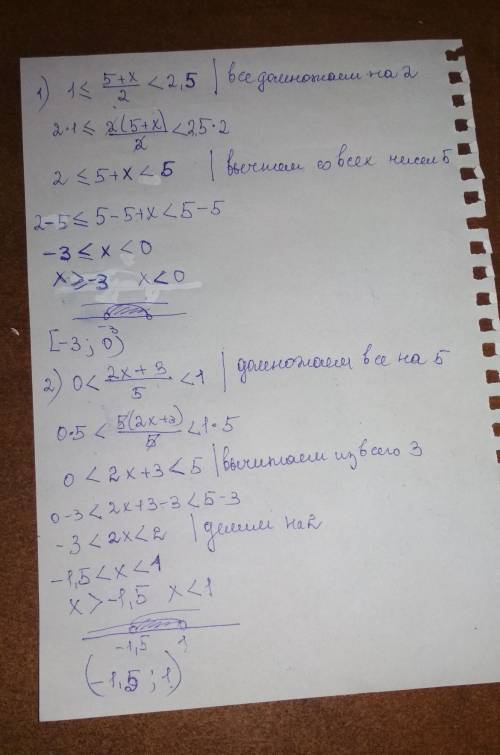 1) 1 ≤ (5+x)/2 < 2,5 | все домножаем на 2
2·1 ≤ 2(5+x)/2 < 2,5·2
2 ≤ 5+x < 5 | вычитаем со всех чисел 5
2-5 ≤ 5-5+x < 5-5
-3 ≤ x < 0
x ≥ -3 x < 0
-3
[-3; 0)
2) 0 < (2x+3)/5 < 1 | домножаем все на 5
0·5 < 5(2x+3)/5 < 1·5
0 < 2x+3 < 5 | вычитаем из всего 3
0-3 < 2x+3-3 < 5-3
-3 < 2x < 2 | делим на 2
-1,5 < x < 1
x > -1,5 x < 1
-1,5 1
(-1,5 ; 1)